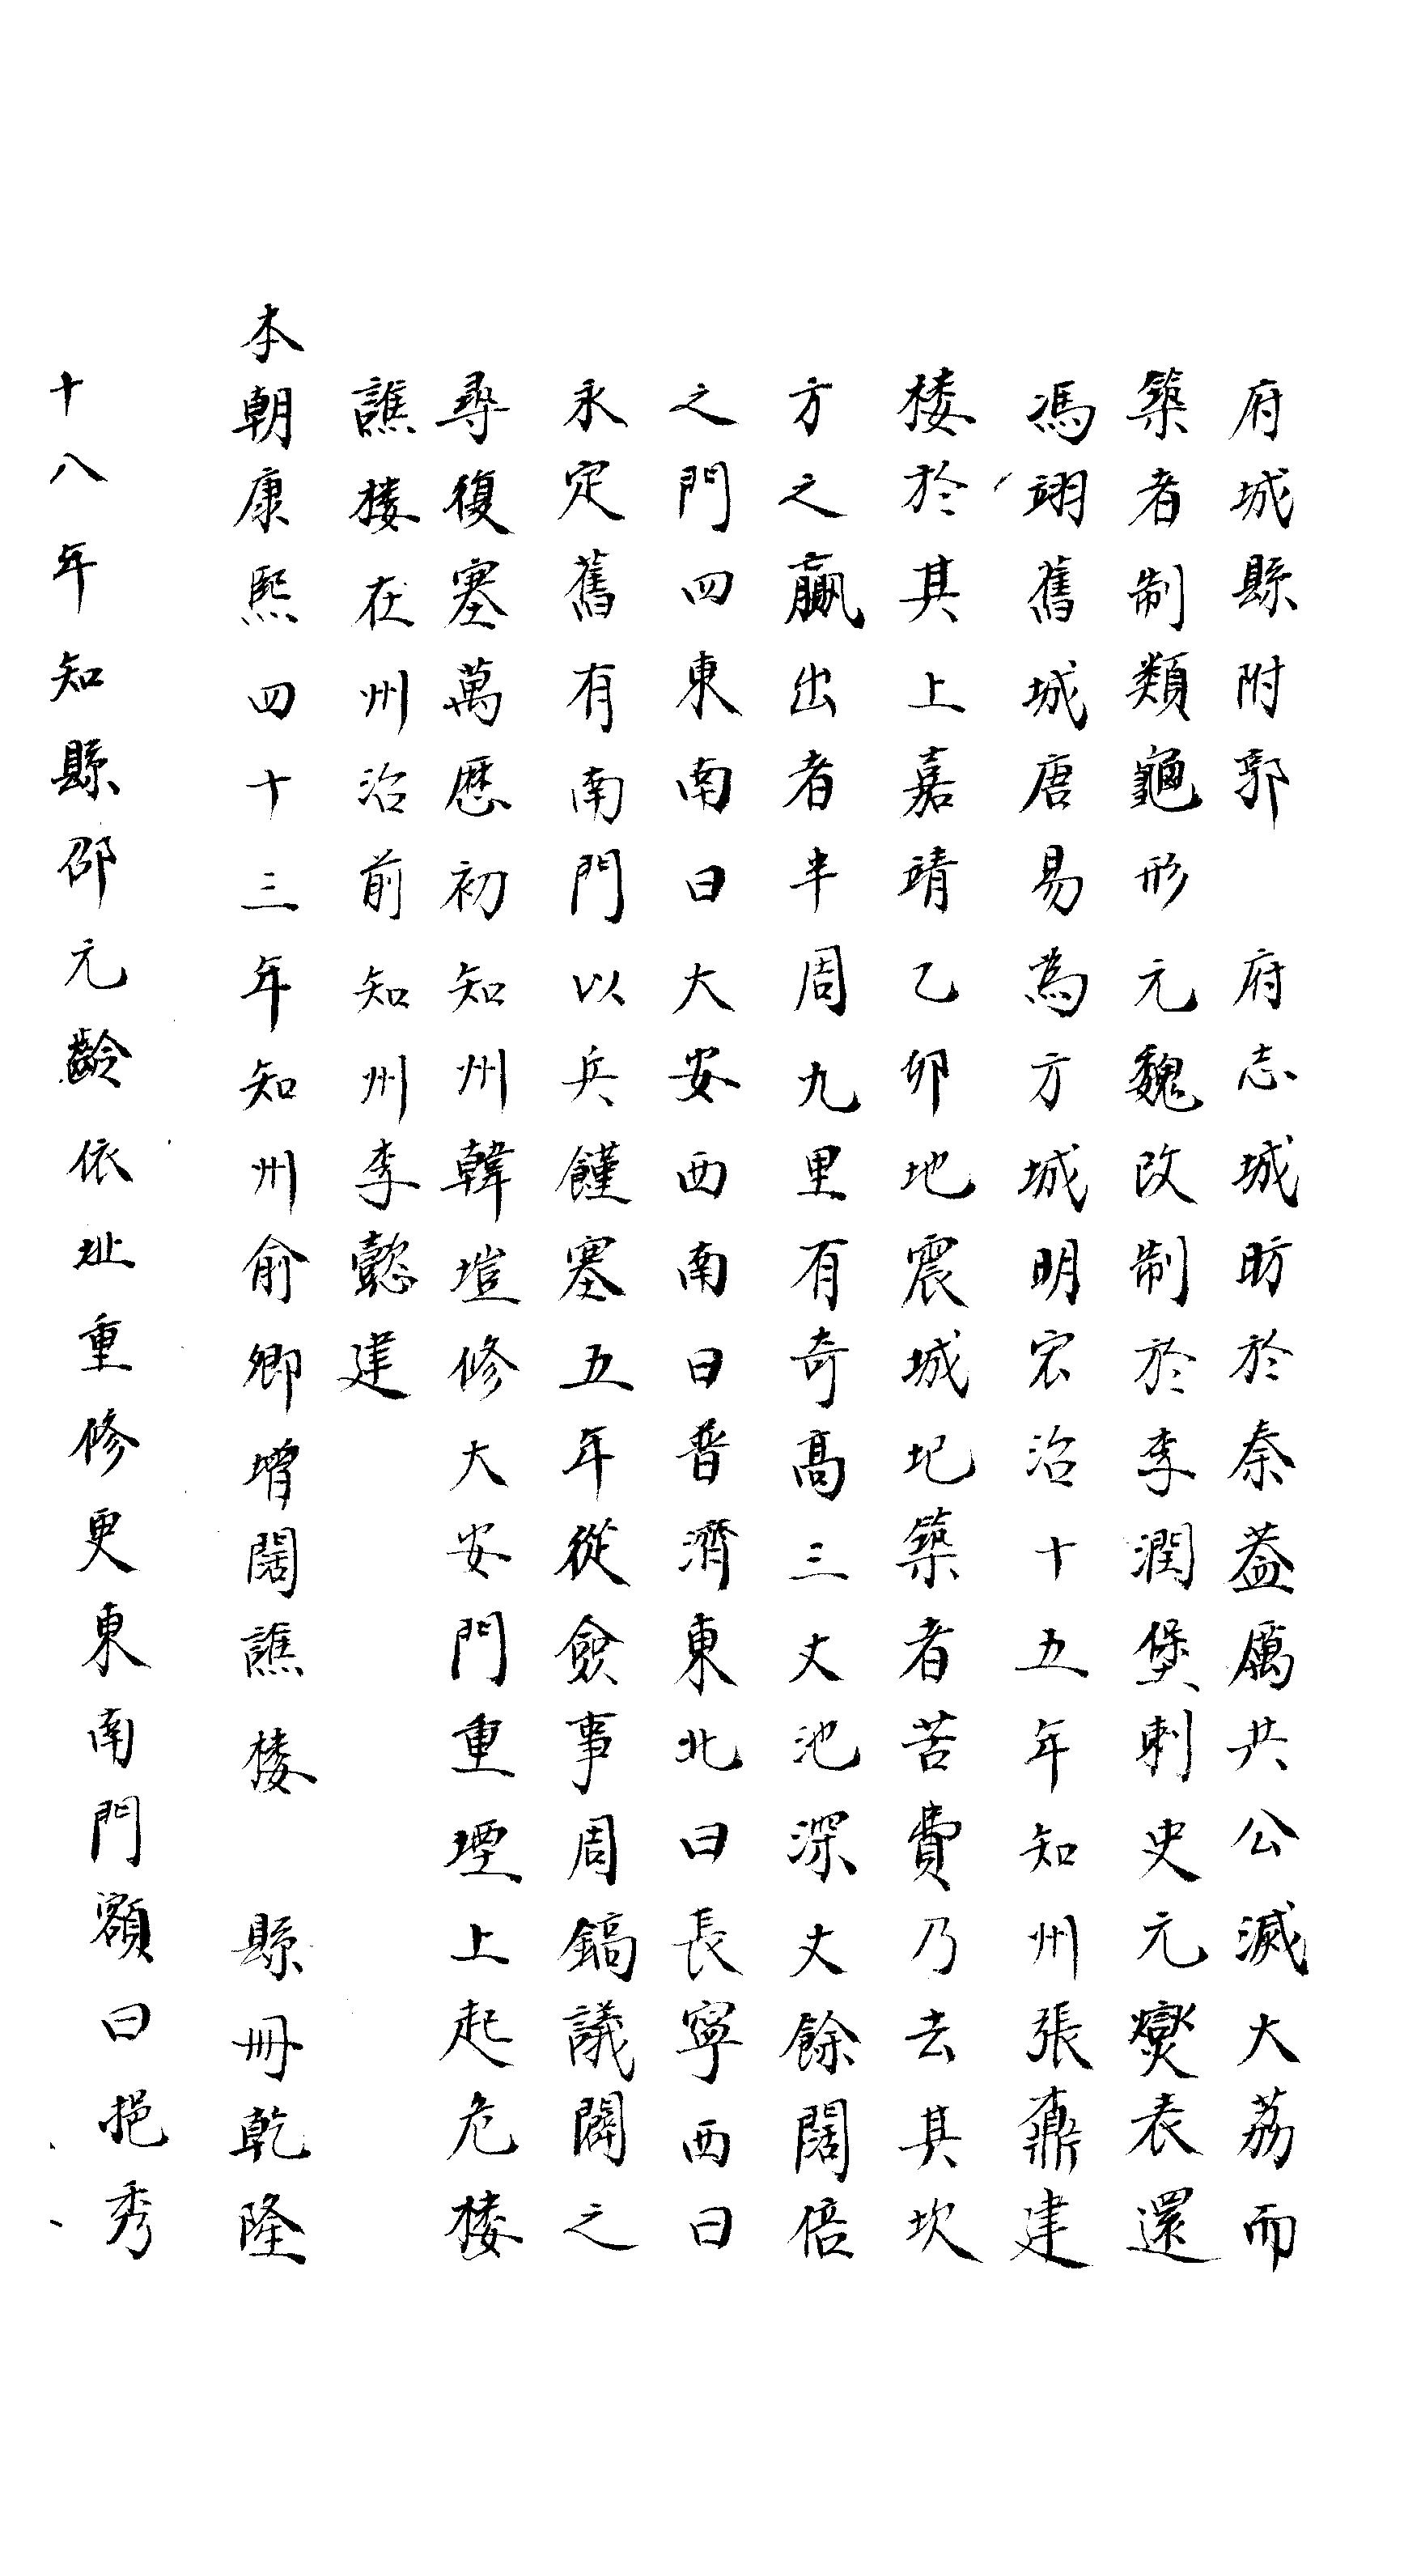 府城縣附郭　府志城昉於秦葢厲共公滅大荔而
築者制類龜形　元魏改制於李潤堡刺史元燮表還
馮翊舊城唐易為方城明宏治十五年知州張鼐建
楼於其上嘉靖乙卯地震城圮築者苦費乃去其坎
方之贏出者半周九里有奇高三丈池深丈餘闊倍
之門四東南曰大安西南曰普濟東北曰長寧西曰
永定舊有南門以兵饉塞五年從僉事周鎬議闢之
尋復塞萬歷初知州韓塏修大安門重堙上起危楼
譙楼在州治前知州李懿建
本朝康熙四十三年知州俞卿增闊譙楼　縣冊乾隆
十八年知縣邵元齡依址重修更東南門額曰挹秀